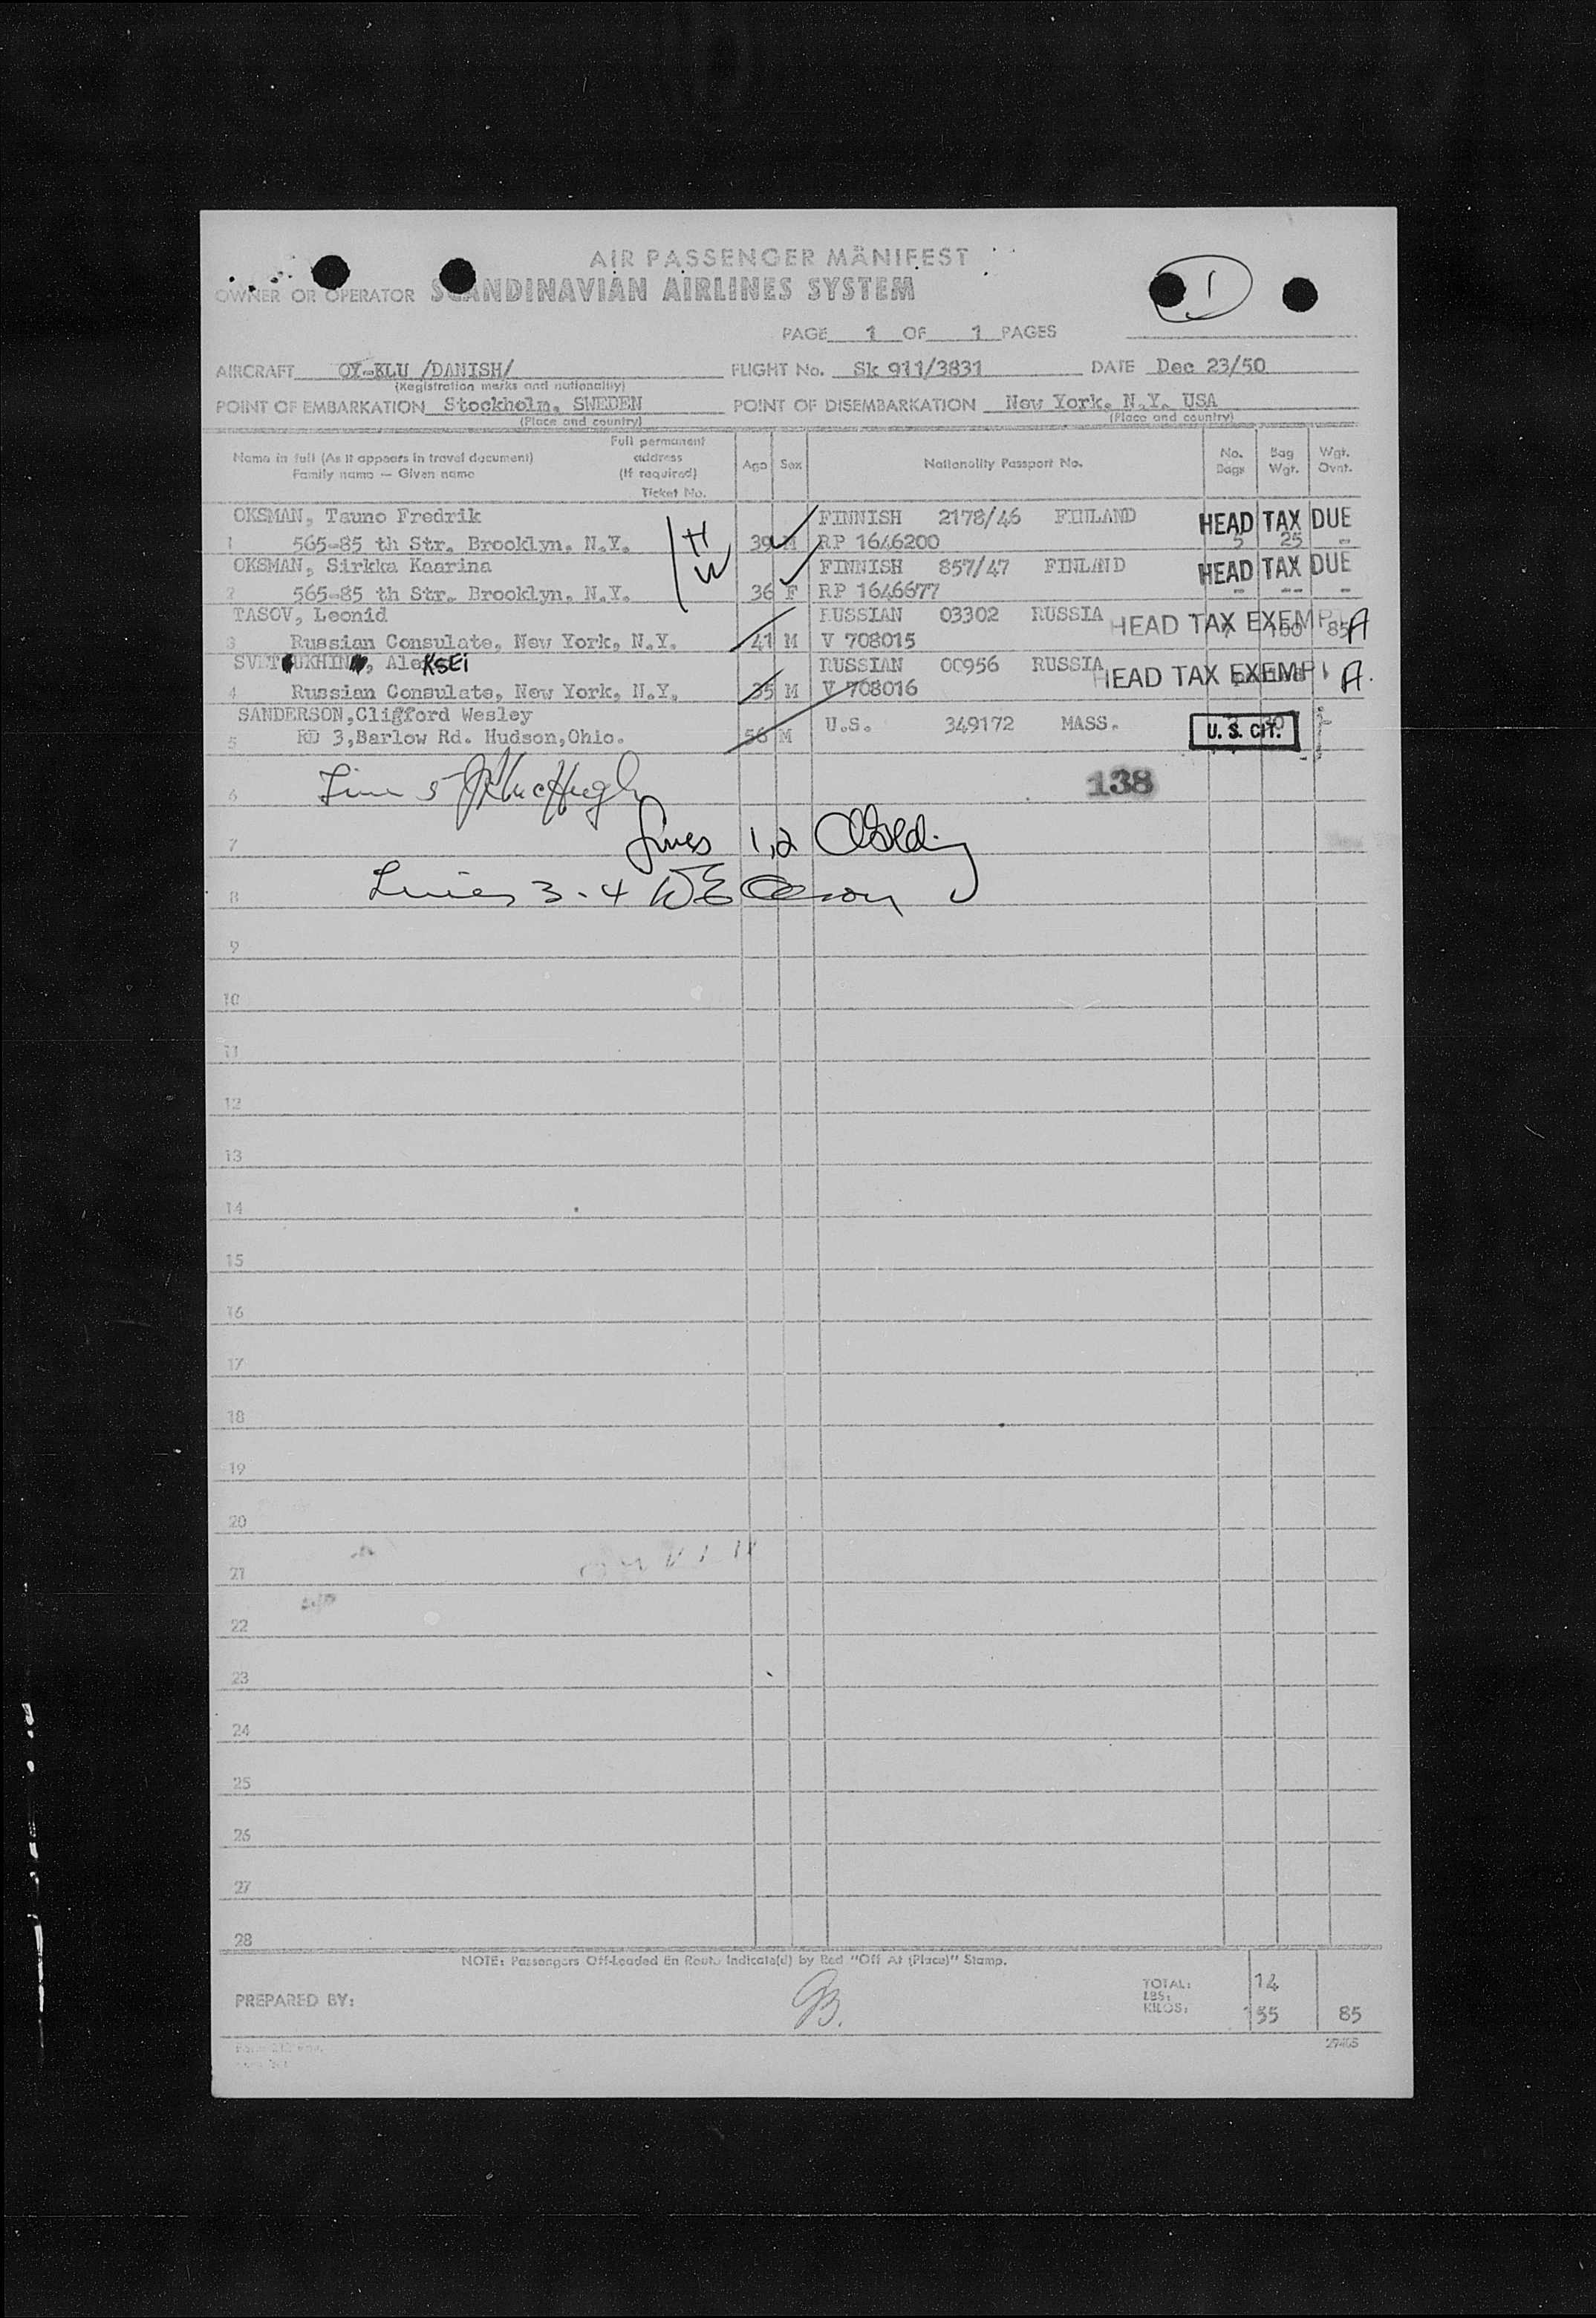 AIR PASSENGER MANIFEST
OWNER OR OPERATOR SCANDINAVIAN AIRLINES SYSTEM
1
PAGE 1 OF 1 PAGES
AIRCRAFT OY-KLU /DANISH/ FLIGHT No. Sk 911/3831 DATE Dec 23/50
(Registration marks and nationality)
POINT OF EMBARKATION Stockholm, SWEDEN POINT OF DISEMBARKATION New York, N.Y. USA
(Place and country) (Place and country)
Name in full (As it appears in travel document) Family name — Given name Full permanent address (If required) Ticket No. Age Sex Nationality Passport No. No. Bags Bag Wgt. Wgt. Ovnt.
OKSMAN, Tauno Fredrik FINNISH 2178/46 FINLAND HEAD TAX DUE
1 565-85 th Str. Brooklyn, N.Y. H 39 M RP 1646200 5 25 -
OKSMAN, Sirkka Kaarina W FINNISH 857/47 FINLAND HEAD TAX DUE
2 565-85 th Str. Brooklyn, N.Y. 36 F RP 1646677 - -- -
TASOV, Leonid RUSSIAN 03302 RUSSIA HEAD TAX EXEMPT A
3 Russian Consulate, New York, N.Y. 41 M V 708015 100 85
Aleksei RUSSIAN 00956 RUSSIA HEAD TAX EXEMPT A.
4 Russian Consulate, New York, N.Y. 35 M V 708016
SANDERSON,Cligford Wesley U.S. 349172 MASS. U. S. CIT.
5 RD 3,Barlow Rd. Hudson,Ohio. 56 M
6 Line 5 McHugh 138
7 Lines 1,2
8 Lines 3-4
9
10
11
12
13
14
15
16
17
18
19
20
21
22
23
24
25
26
27
28
NOTE: Passengers Off-Loaded En Route Indicate(d) by Red "Off At (Place)" Stamp.
TOTAL: 14
PREPARED BY: LBS: KILOS: 155 85
27405